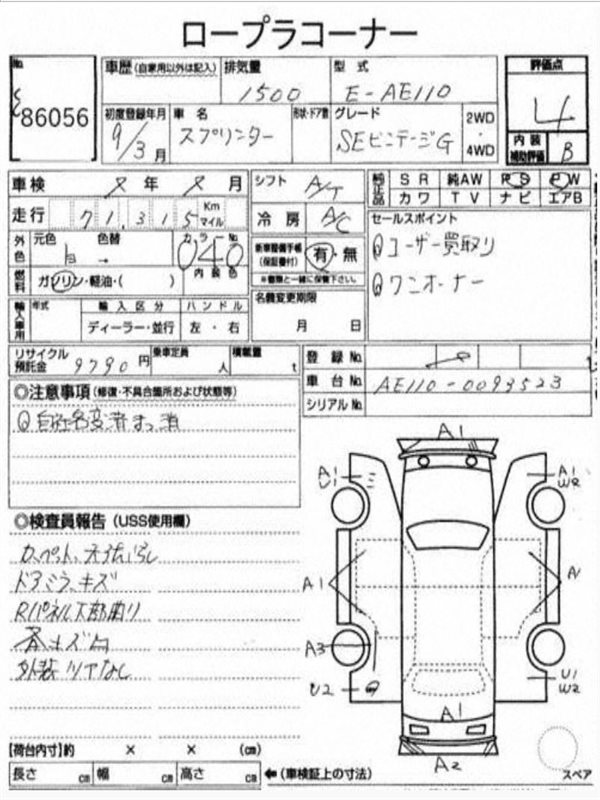 ロープラコーナー
No.
86056
車歴(自家用以外は記入)
排気量
1500
型式
E-AE110
評価点
4
内装
補助評価
B
初度登録年月
9/3月
車名
スプリンター
形状・ドア数
グレード
SEビンテージG
2WD
・
4WD
車検
年
月
シフト
A/T
純正品
SR
純AW
PS
PW
カワ
TV
ナビ
エアB
走行
71,315
Km
マイル
冷房
A/C
セールスポイント
ユーザー買取り
ワンオーナー
外色
元色
色替
白→
カラーNo.
040
内装色
燃料
ガソリン・軽油・( )
新車整備手帳
(保証書付)
有・無
※書類と一緒に保管下さい。
輸入車用
年式
輸入区分
ディーラー・並行
ハンドル
左・右
名義変更期限
月 日
リサイクル
預託金
9790円
乗車定員
人
積載量
t
登録No.
車台No.
AE110-0093523
シリアルNo.
◎注意事項(修復・不具合箇所および状態等)
◎検査員報告(USS使用欄)
ドアミラーキズ
Rパネル下部曲り
外装ツヤなし
A1
A1
U1
A1
W2
A1
A
A3
U2
U1
W2
A1
A2
【荷台内寸】約 × × (cm)
長さ cm
幅 cm
高さ cm
←(車検証上の寸法)
スペア